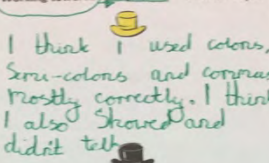 I think I used colons,
Semi-colons and commas
mostly correctly. I think
I also Showed and
didn't tell